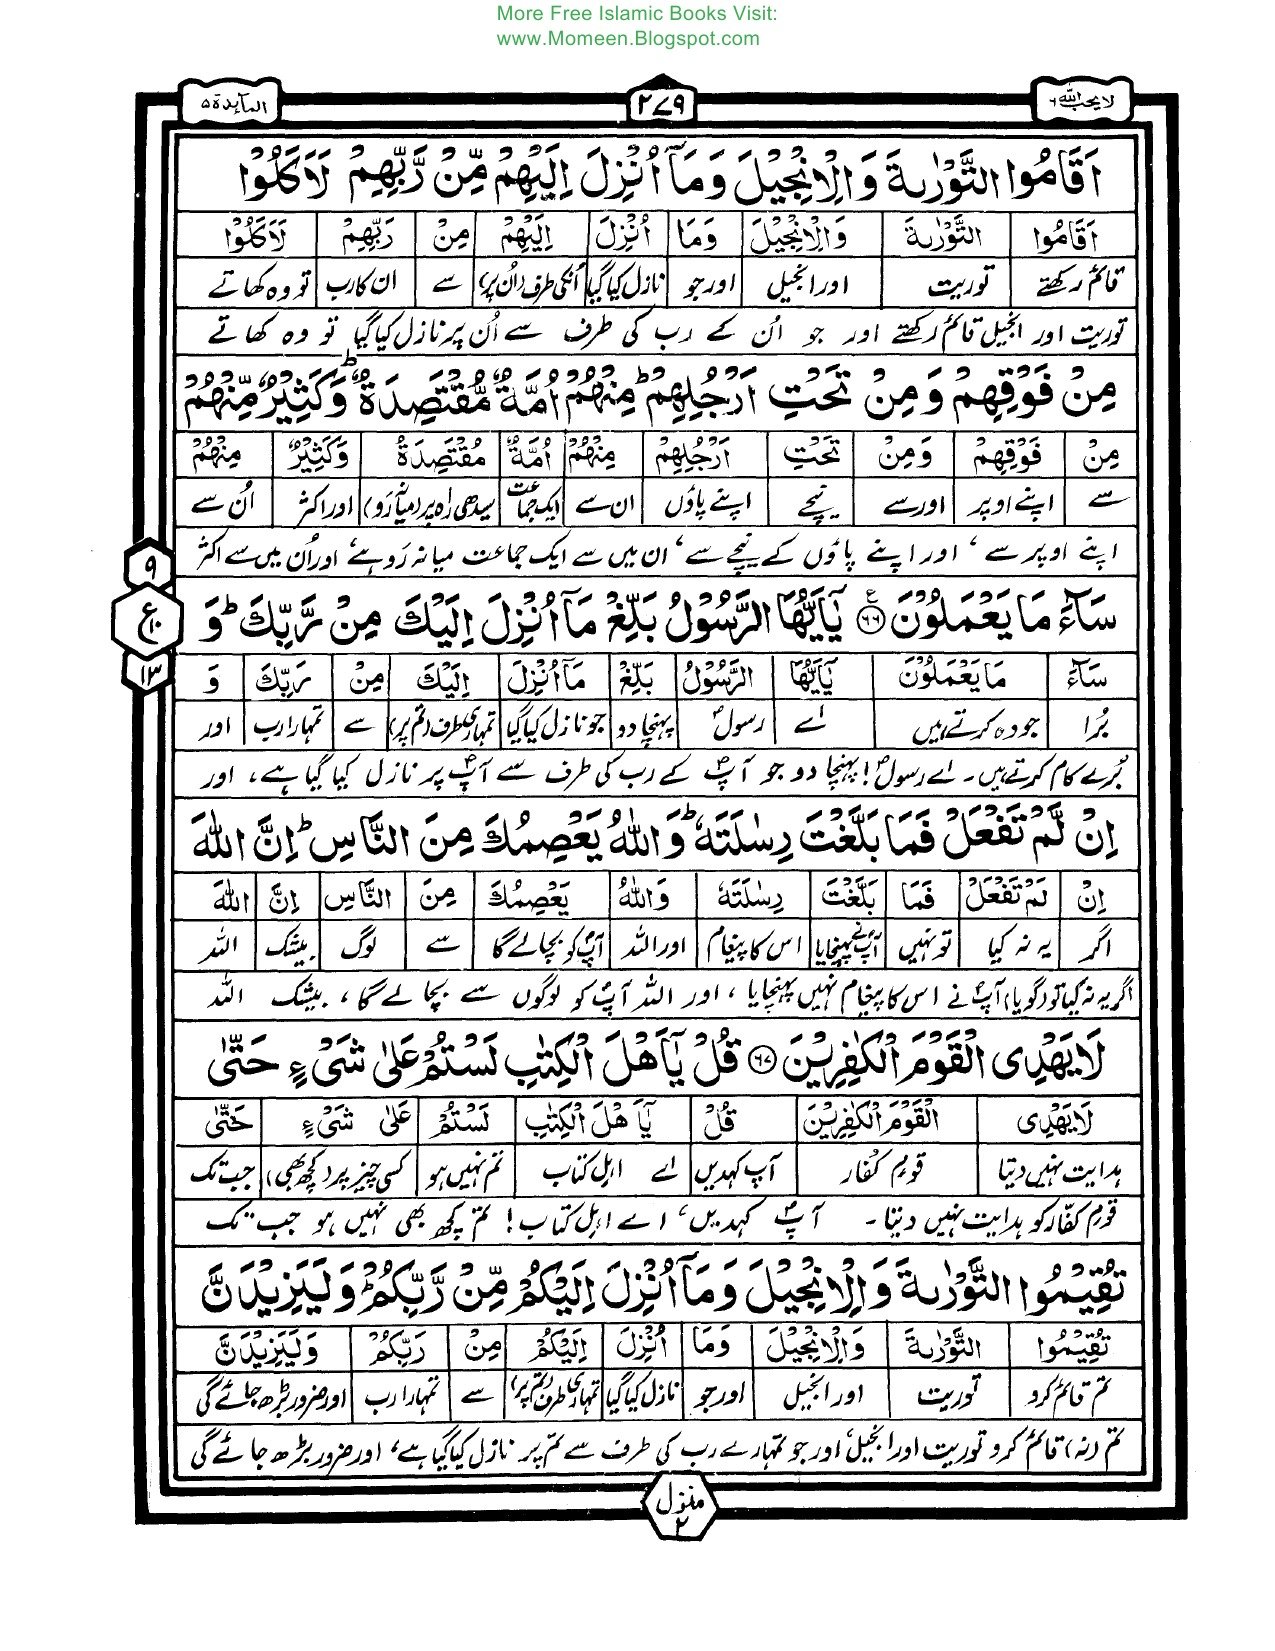 More Free Islamic Books Visit:
www.Momeen.Blogspot.com
لا یحب اللہ ۶
۲۷۹
المآئدة ۵
اَقَامُوا التَّوْرٰىةَ وَالْاِنْجِيْلَ وَمَآ اُنْزِلَ اِلَيْهِمْ مِّنْ رَّبِّهِمْ لَاَكَلُوْا
اَقَامُوا التَّوْرٰىةَ وَالْاِنْجِيْلَ وَمَا اُنْزِلَ اِلَيْهِمْ مِنْ رَبِّهِمْ لَاَكَلُوْا
قائم رکھتے توریت اور انجیل اور جو نازل کیا گیا انکی طرف (اُن پر) سے ان کا رب تو وہ کھاتے
توریت اور انجیل قائم رکھتے اور جو اُن کے رب کی طرف سے اُن پر نازل کیا گیا تو وہ کھاتے
مِنْ فَوْقِهِمْ وَمِنْ تَحْتِ اَرْجُلِهِمْ ؕ مِنْهُمْ اُمَّةٌ مُّقْتَصِدَةٌ ؕ وَكَثِيْرٌ مِّنْهُمْ
مِنْ فَوْقِهِمْ وَمِنْ تَحْتِ اَرْجُلِهِمْ مِنْهُمْ اُمَّةٌ مُقْتَصِدَةٌ وَكَثِيْرٌ مِنْهُمْ
سے اپنے اوپر اور سے نیچے اپنے پاؤں ان سے ایک جماعت سیدھی راہ پر (میانہ رَو) اور اکثر اُن سے
اپنے اوپر سے ، اور اپنے پاؤں کے نیچے سے ، ان میں سے ایک جماعت میانہ رَو ہے ، اور اُن میں سے اکثر
۹
ع ۱۰
۱۳
سَآءَ مَا يَعْمَلُوْنَ ۶۶ يٰۤاَيُّهَا الرَّسُوْلُ بَلِّغْ مَآ اُنْزِلَ اِلَيْكَ مِنْ رَّبِّكَ ؕ وَ
سَآءَ مَا يَعْمَلُوْنَ يٰۤاَيُّهَا الرَّسُوْلُ بَلِّغْ مَآ اُنْزِلَ اِلَيْكَ مِنْ رَبِّكَ وَ
بُرا جو وہ کرتے ہیں اے رسولؐ پہنچا دو جو نازل کیا گیا تمہاری طرف (تم پر) سے تمہارا رب اور
بُرے کام کرتے ہیں۔ اے رسولؐ! پہنچا دو جو آپؐ کے رب کی طرف سے آپؐ پر نازل کیا گیا ہے، اور
اِنْ لَّمْ تَفْعَلْ فَمَا بَلَّغْتَ رِسٰلَتَهٗ ؕ وَاللّٰهُ يَعْصِمُكَ مِنَ النَّاسِ ؕ اِنَّ اللّٰهَ
اِنْ لَمْ تَفْعَلْ فَمَا بَلَّغْتَ رِسٰلَتَهٗ وَاللّٰهُ يَعْصِمُكَ مِنَ النَّاسِ اِنَّ اللّٰهَ
اگر یہ نہ کیا تو نہیں آپؐ نے پہنچایا اس کا پیغام اور اللہ آپؐ کو بچالے گا سے لوگ بیشک اللہ
اگر یہ نہ کیا تو (گویا) آپؐ نے اس کا پیغام نہیں پہنچایا ، اور اللہ آپؐ کو لوگوں سے بچالے گا ، بیشک اللہ
لَا يَهْدِى الْقَوْمَ الْكٰفِرِيْنَ ۶۷ قُلْ يٰۤاَهْلَ الْكِتٰبِ لَسْتُمْ عَلٰى شَىْءٍ حَتّٰى
لَا يَهْدِى الْقَوْمَ الْكٰفِرِيْنَ قُلْ يٰۤاَهْلَ الْكِتٰبِ لَسْتُمْ عَلٰى شَىْءٍ حَتّٰى
ہدایت نہیں دیتا قومِ کفار آپ کہدیں اے اہل کتاب تم نہیں ہو کسی چیز پر (کچھ بھی) جب تک
قومِ کفار کو ہدایت نہیں دیتا۔ آپؐ کہدیں، اے اہل کتاب! تم کچھ بھی نہیں ہو جب تک
تُقِيْمُوا التَّوْرٰىةَ وَالْاِنْجِيْلَ وَمَآ اُنْزِلَ اِلَيْكُمْ مِّنْ رَّبِّكُمْ ؕ وَلَيَزِيْدَنَّ
تُقِيْمُوا التَّوْرٰىةَ وَالْاِنْجِيْلَ وَمَا اُنْزِلَ اِلَيْكُمْ مِنْ رَبِّكُمْ وَلَيَزِيْدَنَّ
تم قائم کرو توریت اور انجیل اور جو نازل کیا گیا تمہاری طرف (تم پر) سے تمہارا رب اور ضرور بڑھ جائے گی
تم (نہ) قائم کرو توریت اور انجیل اور جو تمہارے رب کی طرف سے تم پر نازل کیا گیا ہے، اور ضرور بڑھ جائے گی
منزل
۲